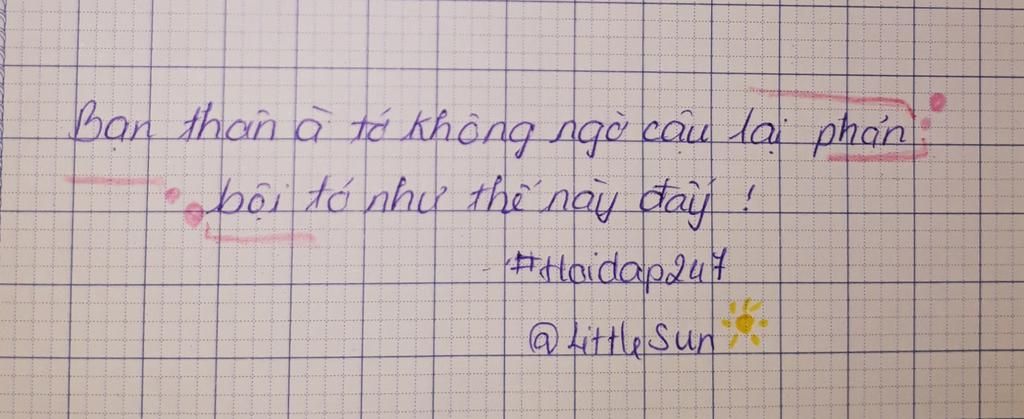 Bạn thân à tớ không ngờ cậu lại phản
bội tớ như thế này đấy !
#Hoidap247
@LittleSun